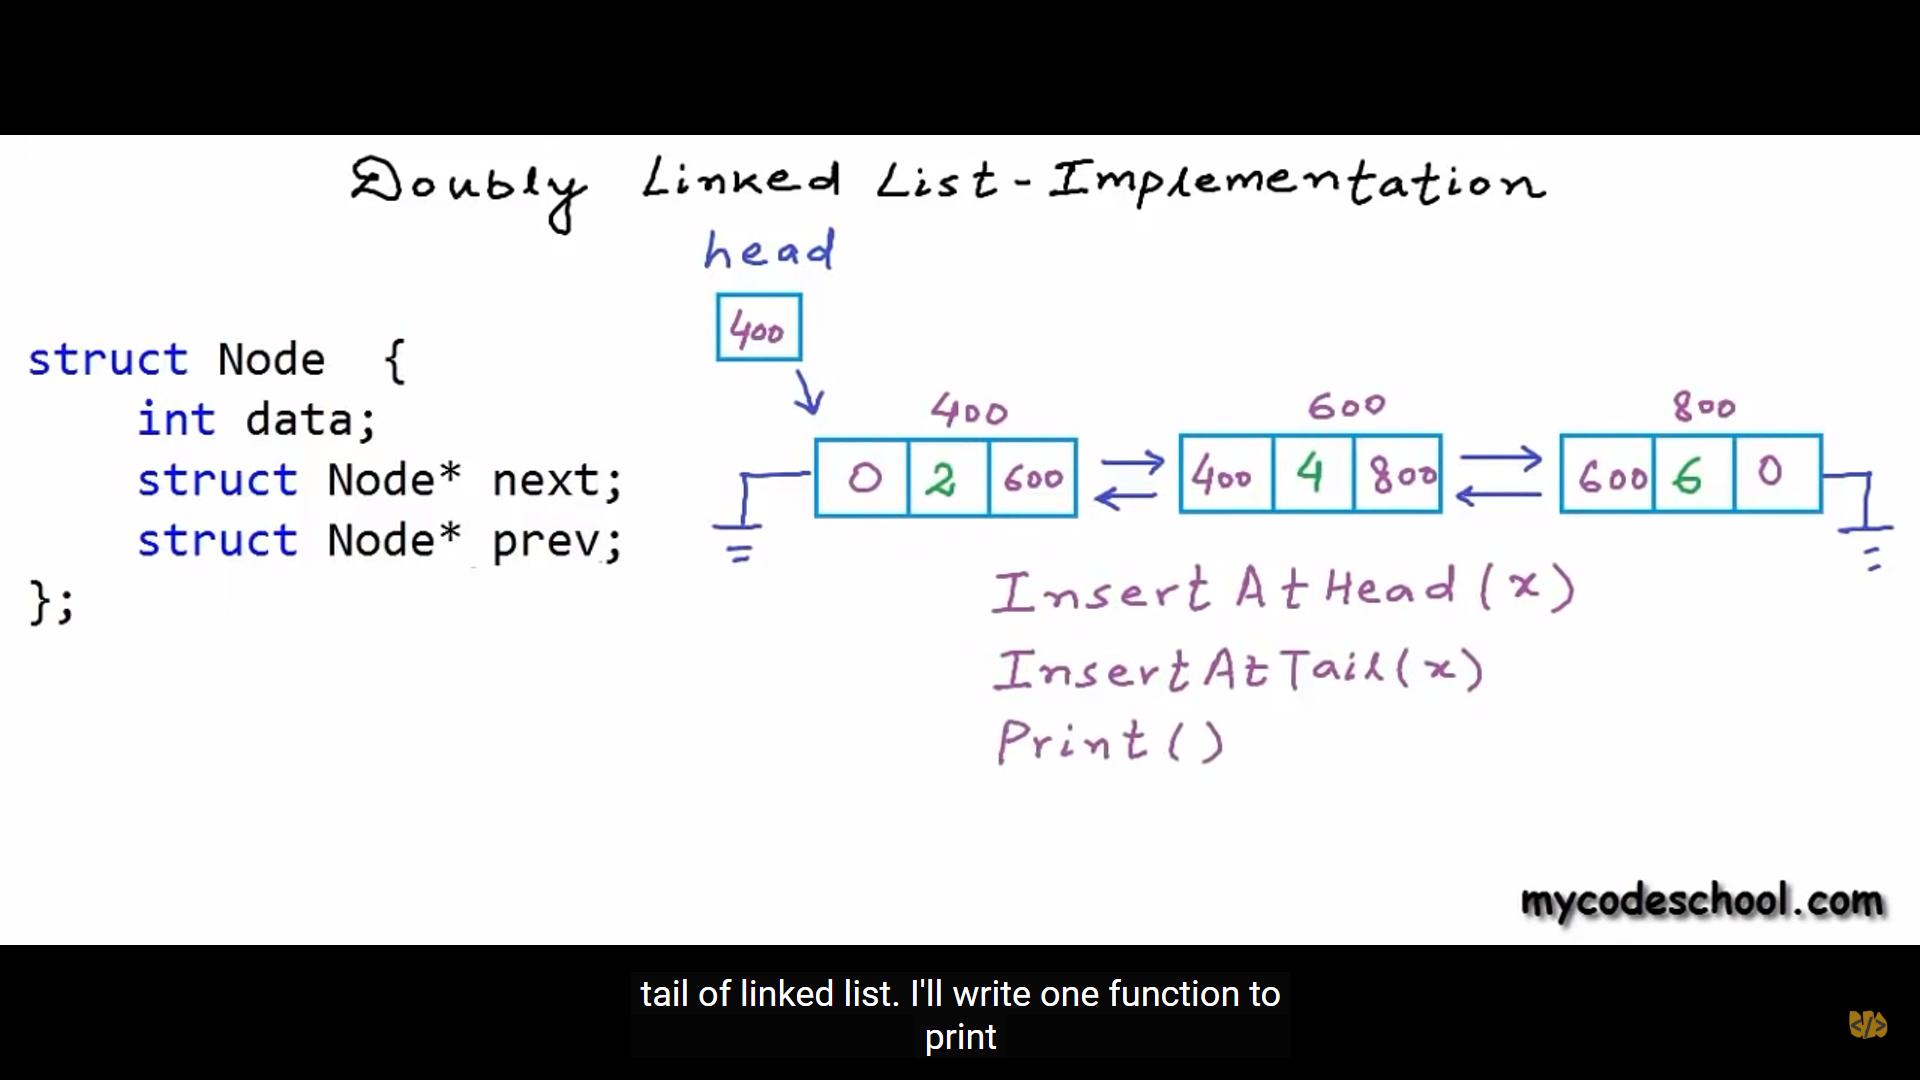 Doubly Linked List - Implementation
head
400
struct Node {
int data;
struct Node* next;
struct Node* prev;
};
400 600 800
0 2 600 400 4 800 600 6 0
InsertAtHead(x)
InsertAtTail(x)
Print()
mycodeschool.com
tail of linked list. I'll write one function to
print